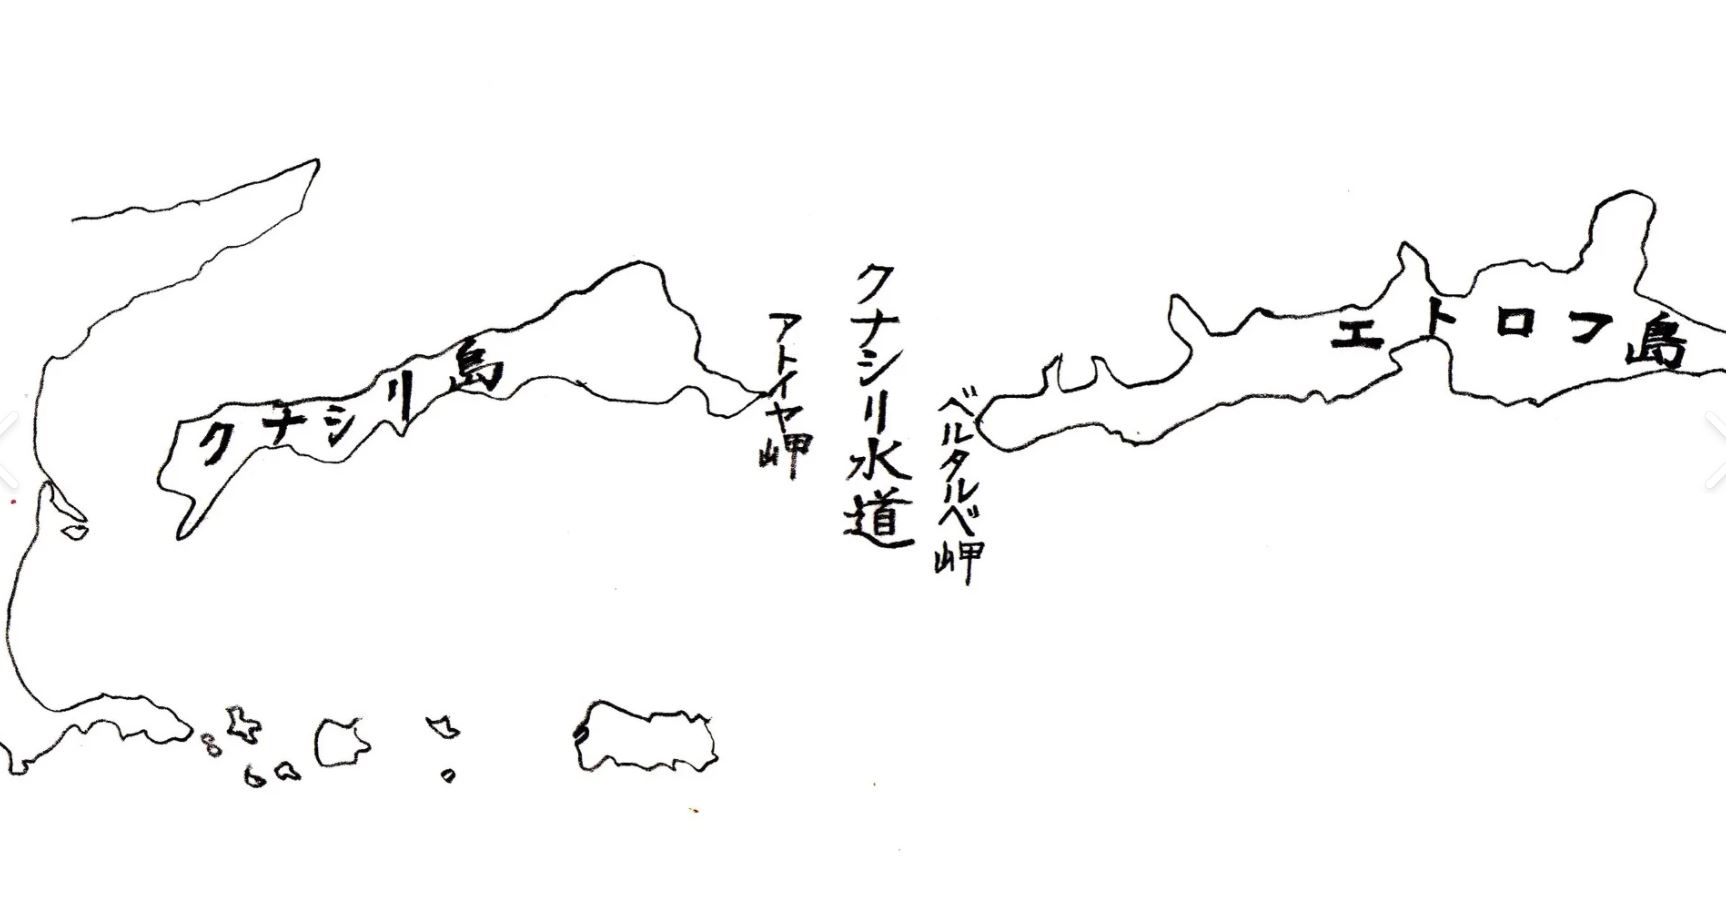 クナシリ島
アトイヤ岬
クナシリ水道
ベルタルベ岬
エトロフ島